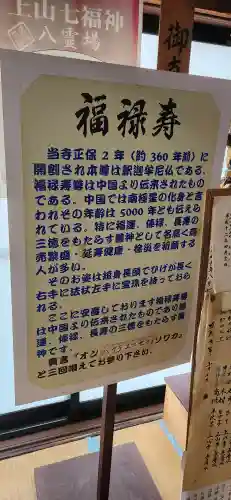 上山七福神
八霊場
福禄寿
当寺正保2年(約360年前)に
開創され本尊は釈迦牟尼仏である。
福禄寿尊は中国より伝来されたもの
である。中国では南極星の化身と言
われその年齢は5000年とも伝えら
れている。特に福運、俸禄、長寿の
三徳をもたらす福神として名高く商
売繁盛・延寿健康・除災を祈願する
人が多い。
そのお姿は短身長頭でひげが長く
右手に法杖左手に宝珠を持っている。
ここに安置しております福禄寿尊
は中国より伝来されたものであり福
運、俸禄、長寿の三徳をもたらす福
神です。
真言「オン
ソワカ」
と三回唱えてお参り下さい。
御